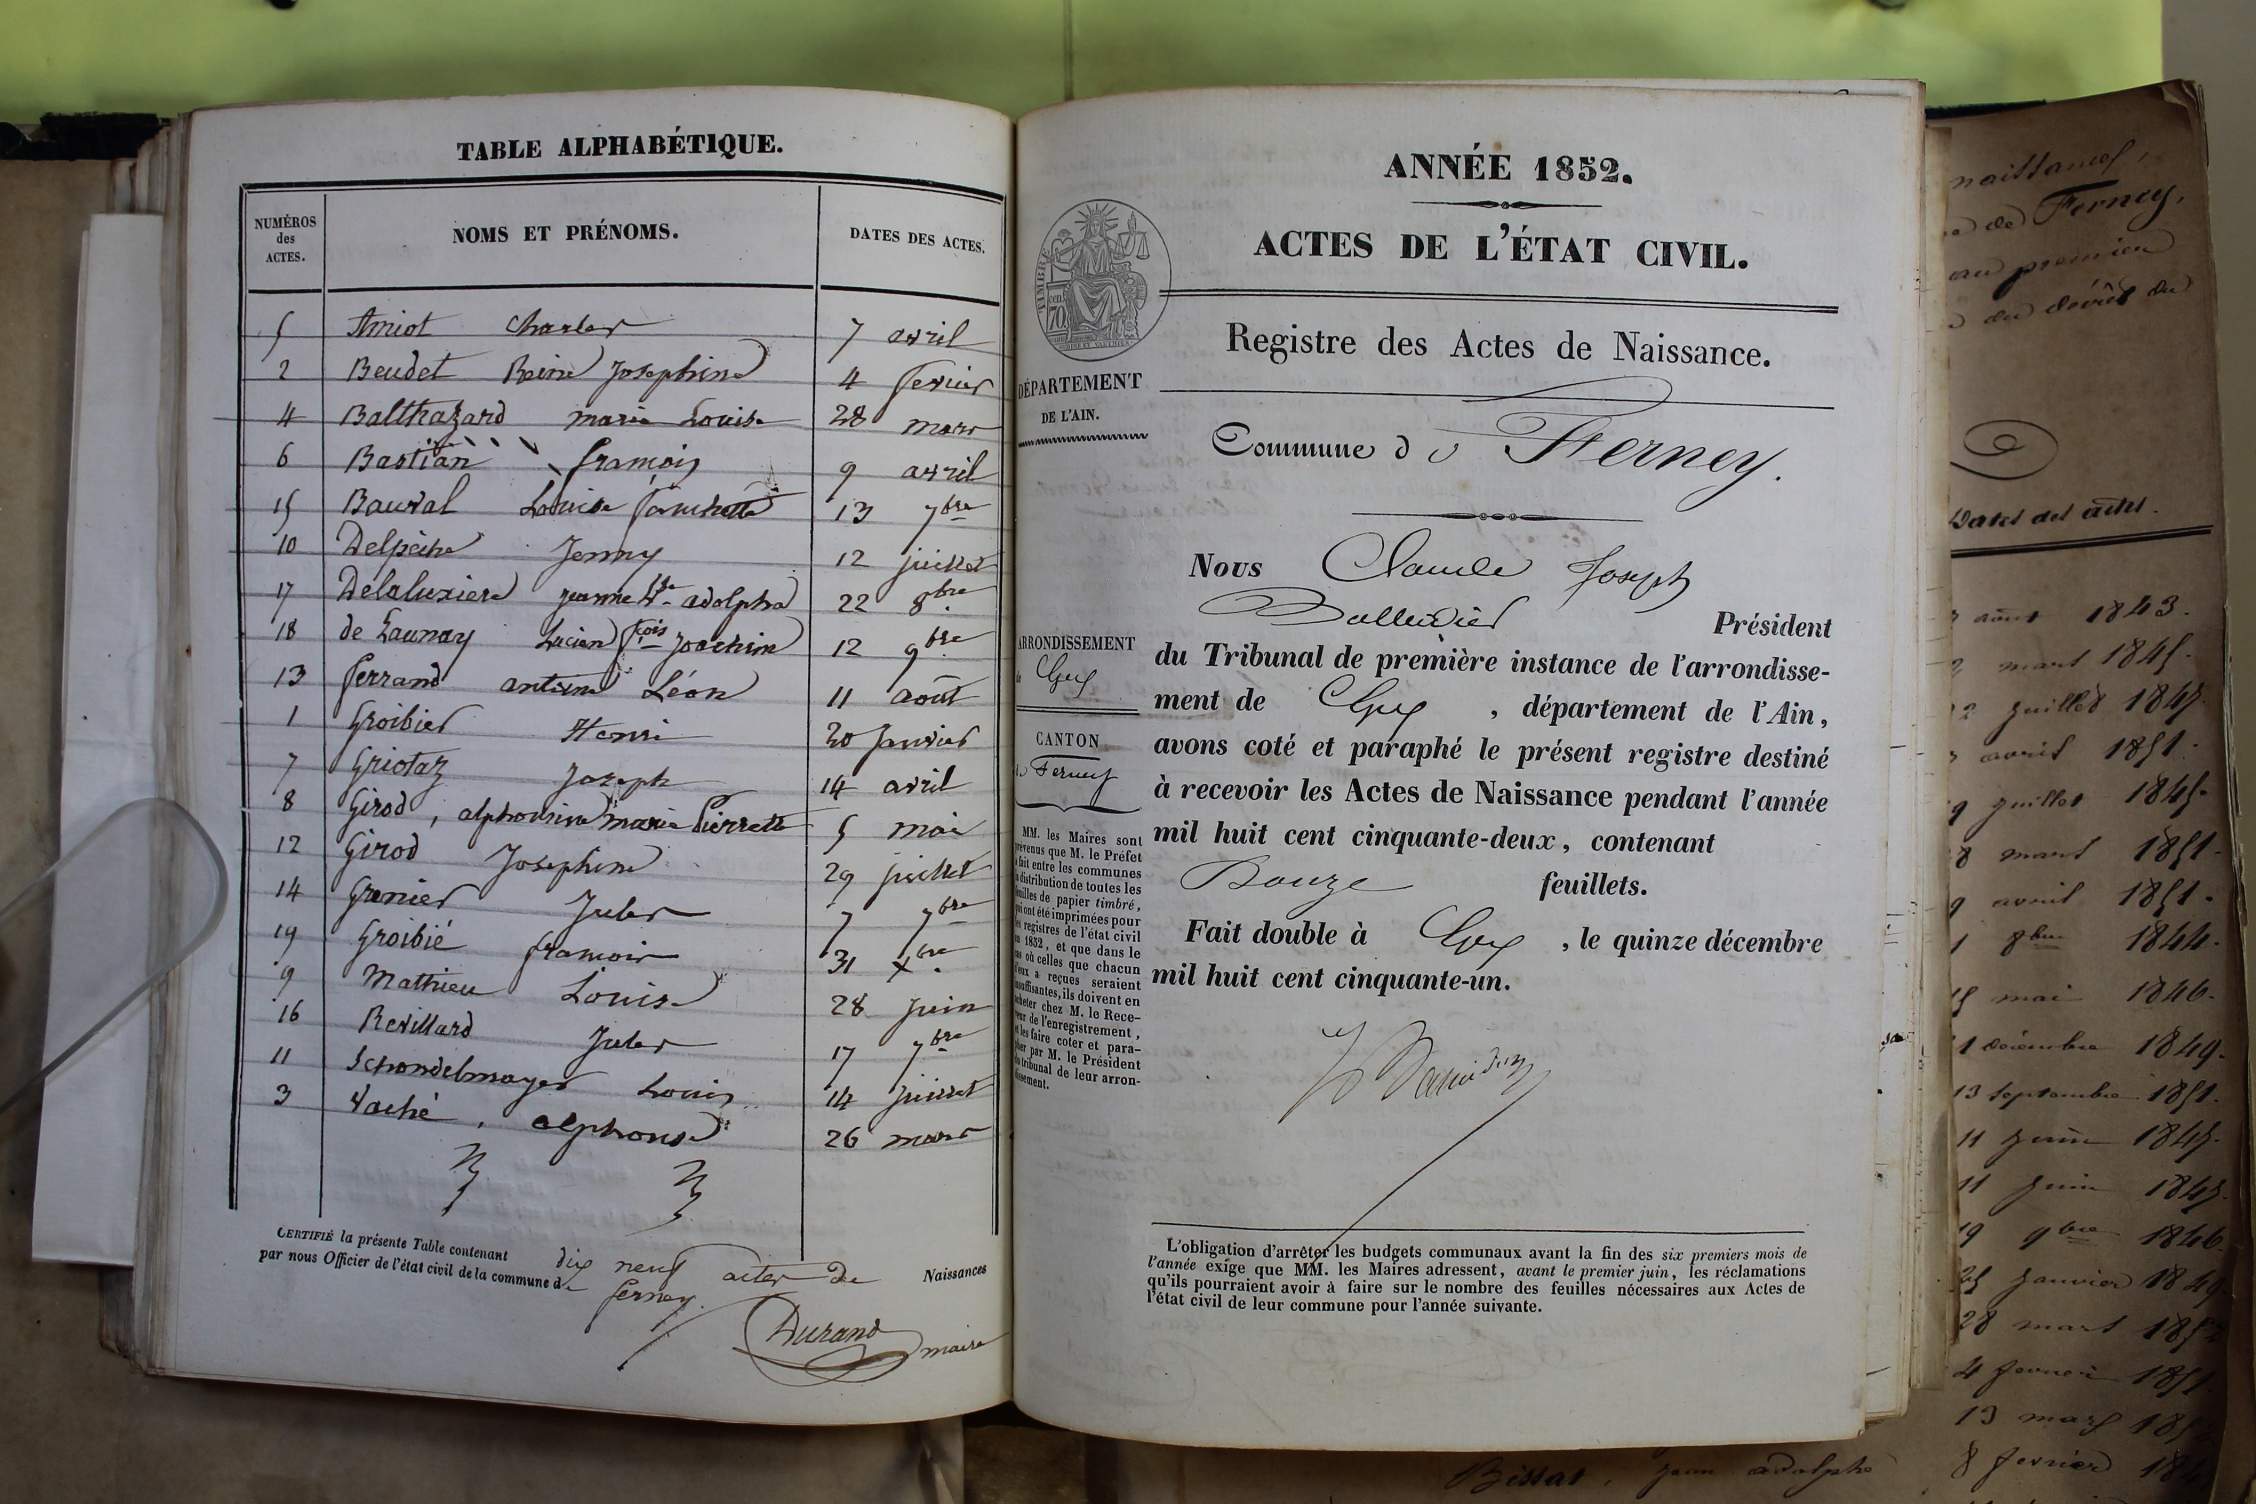 TABLE ALPHABÉTIQUE.
NUMÉROS des ACTES. NOMS ET PRÉNOMS. DATES DES ACTES.
5 Amiot Charles 7 avril
2 Beudet Reine Josephine 4 fevrier
4 Balthazard marie Louise 28 mars
6 Bastian françois 9 avril
15 Bauval Louise fanchette 13 7bre
10 Delpêche Jenny 12 juillet
17 Jeanne adolpha 22 8bre
18 de Launay Lucien fçois Joachim 12 9bre
13 ferrand antoine Léon 11 août
1 Groibier Henri 20 Janvier
7 Griotaz Joseph 14 avril
8 Girod, alphonsine marie Pierrette 5 mai
12 Girod Josephine 29 juillet
14 Grenier Jules 7 7bre
19 Groibié françois 31 Xbre
9 Mathieu Louise 28 Juin
16 Revillard Jules 17 7bre
11 Schondelmayer Louis 14 juillet
3 Vaché, alphonse 26 mars
CERTIFIÉ la présente Table contenant dix neuf actes de Naissances
par nous Officier de l'état civil de la commune de ferney.
Durand maire
ANNÉE 1852.
ACTES DE L'ÉTAT CIVIL.
TIMBRE
70 cen.
Registre des Actes de Naissance.
DÉPARTEMENT
DE L'AIN.
Commune de Ferney.
Nous Claude Joseph
Président
du Tribunal de première instance de l'arrondisse-
ment de Gex, département de l'Ain,
avons coté et paraphé le présent registre destiné
à recevoir les Actes de Naissance pendant l'année
mil huit cent cinquante-deux, contenant
Douze feuillets.
Fait double à Gex, le quinze décembre
mil huit cent cinquante-un.
ARRONDISSEMENT
de Gex
CANTON
de Ferney
MM. les Maires sont
prévenus que M. le Préfet
a fait entre les communes
la distribution de toutes les
feuilles de papier timbré,
qui ont été imprimées pour
les registres de l'état civil
en 1852, et que dans le
cas où celles que chacun
d'eux a reçues seraient
insuffisantes, ils doivent en
acheter chez M. le Rece-
veur de l'enregistrement,
et les faire coter et para-
pher par M. le Président
du tribunal de leur arron-
dissement.
L'obligation d'arrêter les budgets communaux avant la fin des six premiers mois de
l'année exige que MM. les Maires adressent, avant le premier juin, les réclamations
qu'ils pourraient avoir à faire sur le nombre des feuilles nécessaires aux Actes de
l'état civil de leur commune pour l'année suivante.
naissances,
de Ferney,
au premier
du décès du
Dates des actes.
août 1843.
mars 1845.
juillet 1845.
avril 1851.
9 juillet 1845.
8 mars 1851.
9 avril 1851.
1 8bre 1844.
15 mai 1846.
1 décembre 1849.
13 septembre 1851.
11 juin 1845.
11 juin 1845.
19 9bre 1846.
25 janvier 1849
28 mars
4 fevrier 1851.
13 mars
8 fevrier
Bissat, jean adolphe